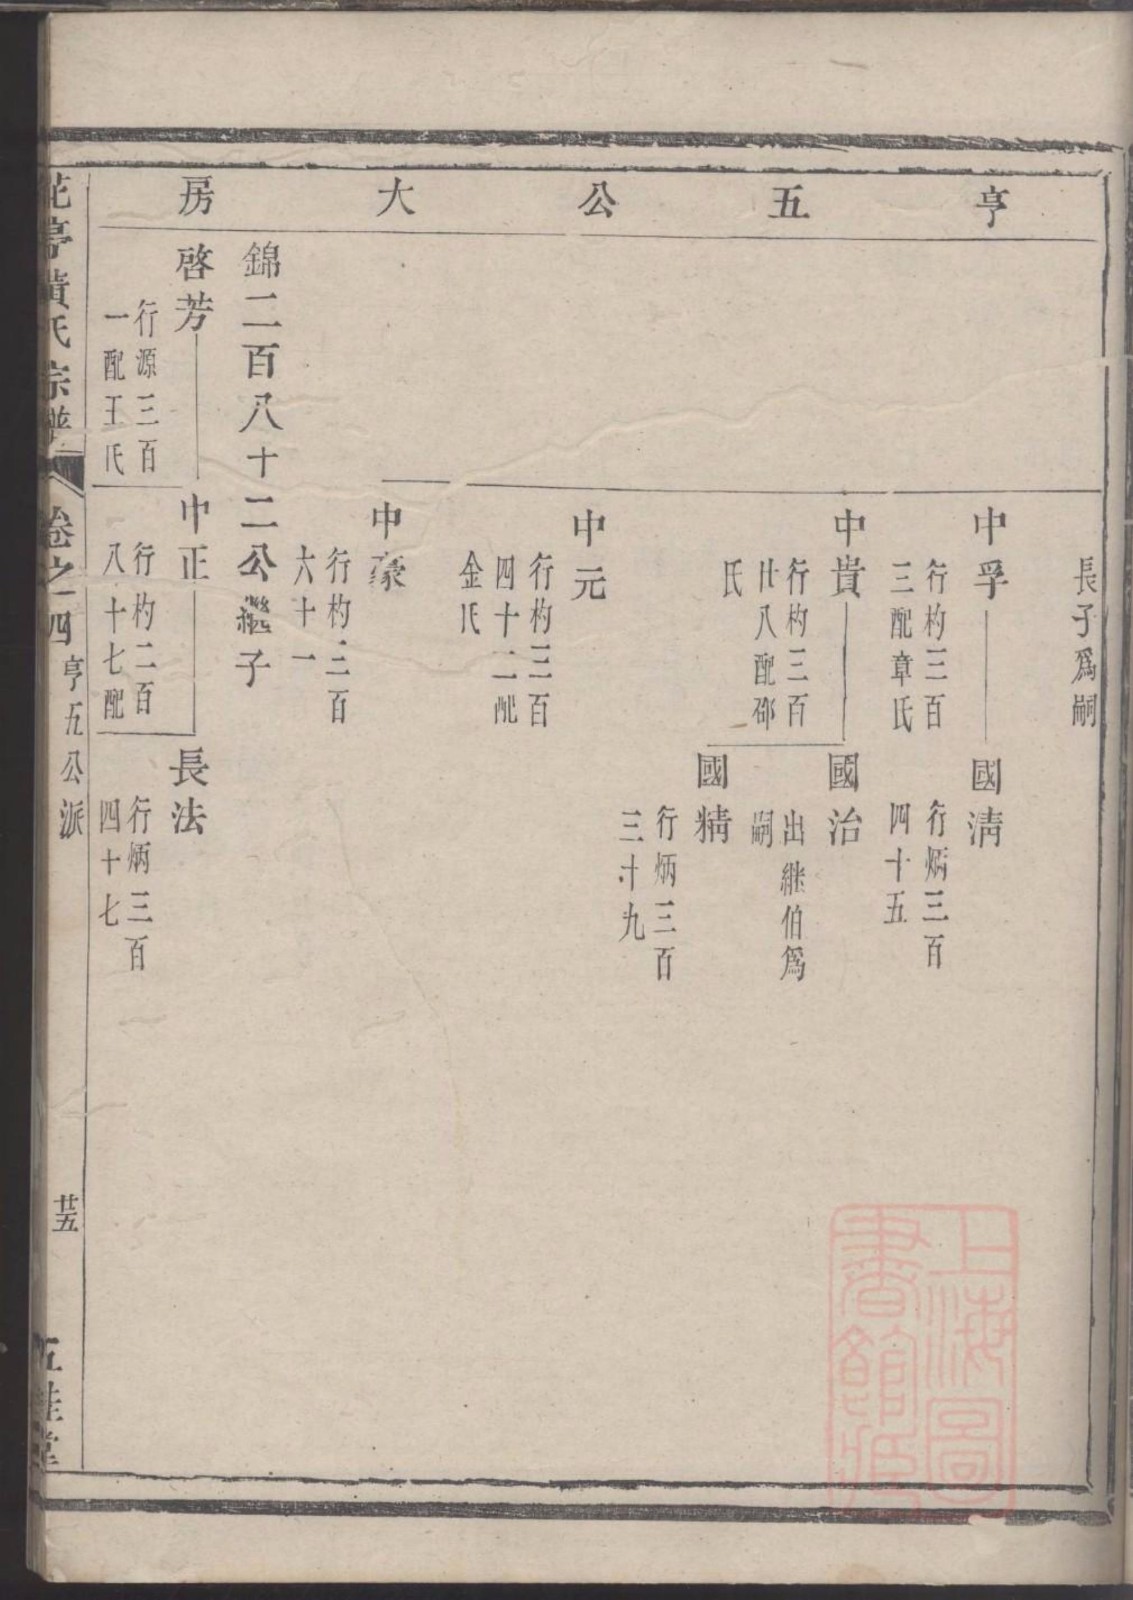 亨五公大房
長子為嗣
中孚
行杓三百
三配章氏
國清
行炳三百
四十五
中貴
行杓三百
廿八配邵
氏
國治
出継伯為
嗣
國精
行炳三百
三十九
中元
行杓三百
四十二配
金氏
中豪
行杓三百
六十一
錦二百八十二公繼子
啓芳
行源三百
一配王氏
中正
行杓二百
八十七配
長法
行炳三百
四十七
花亭黃氏宗譜
卷之四
亨五公派
廿五
五桂堂
上海圖
書館藏